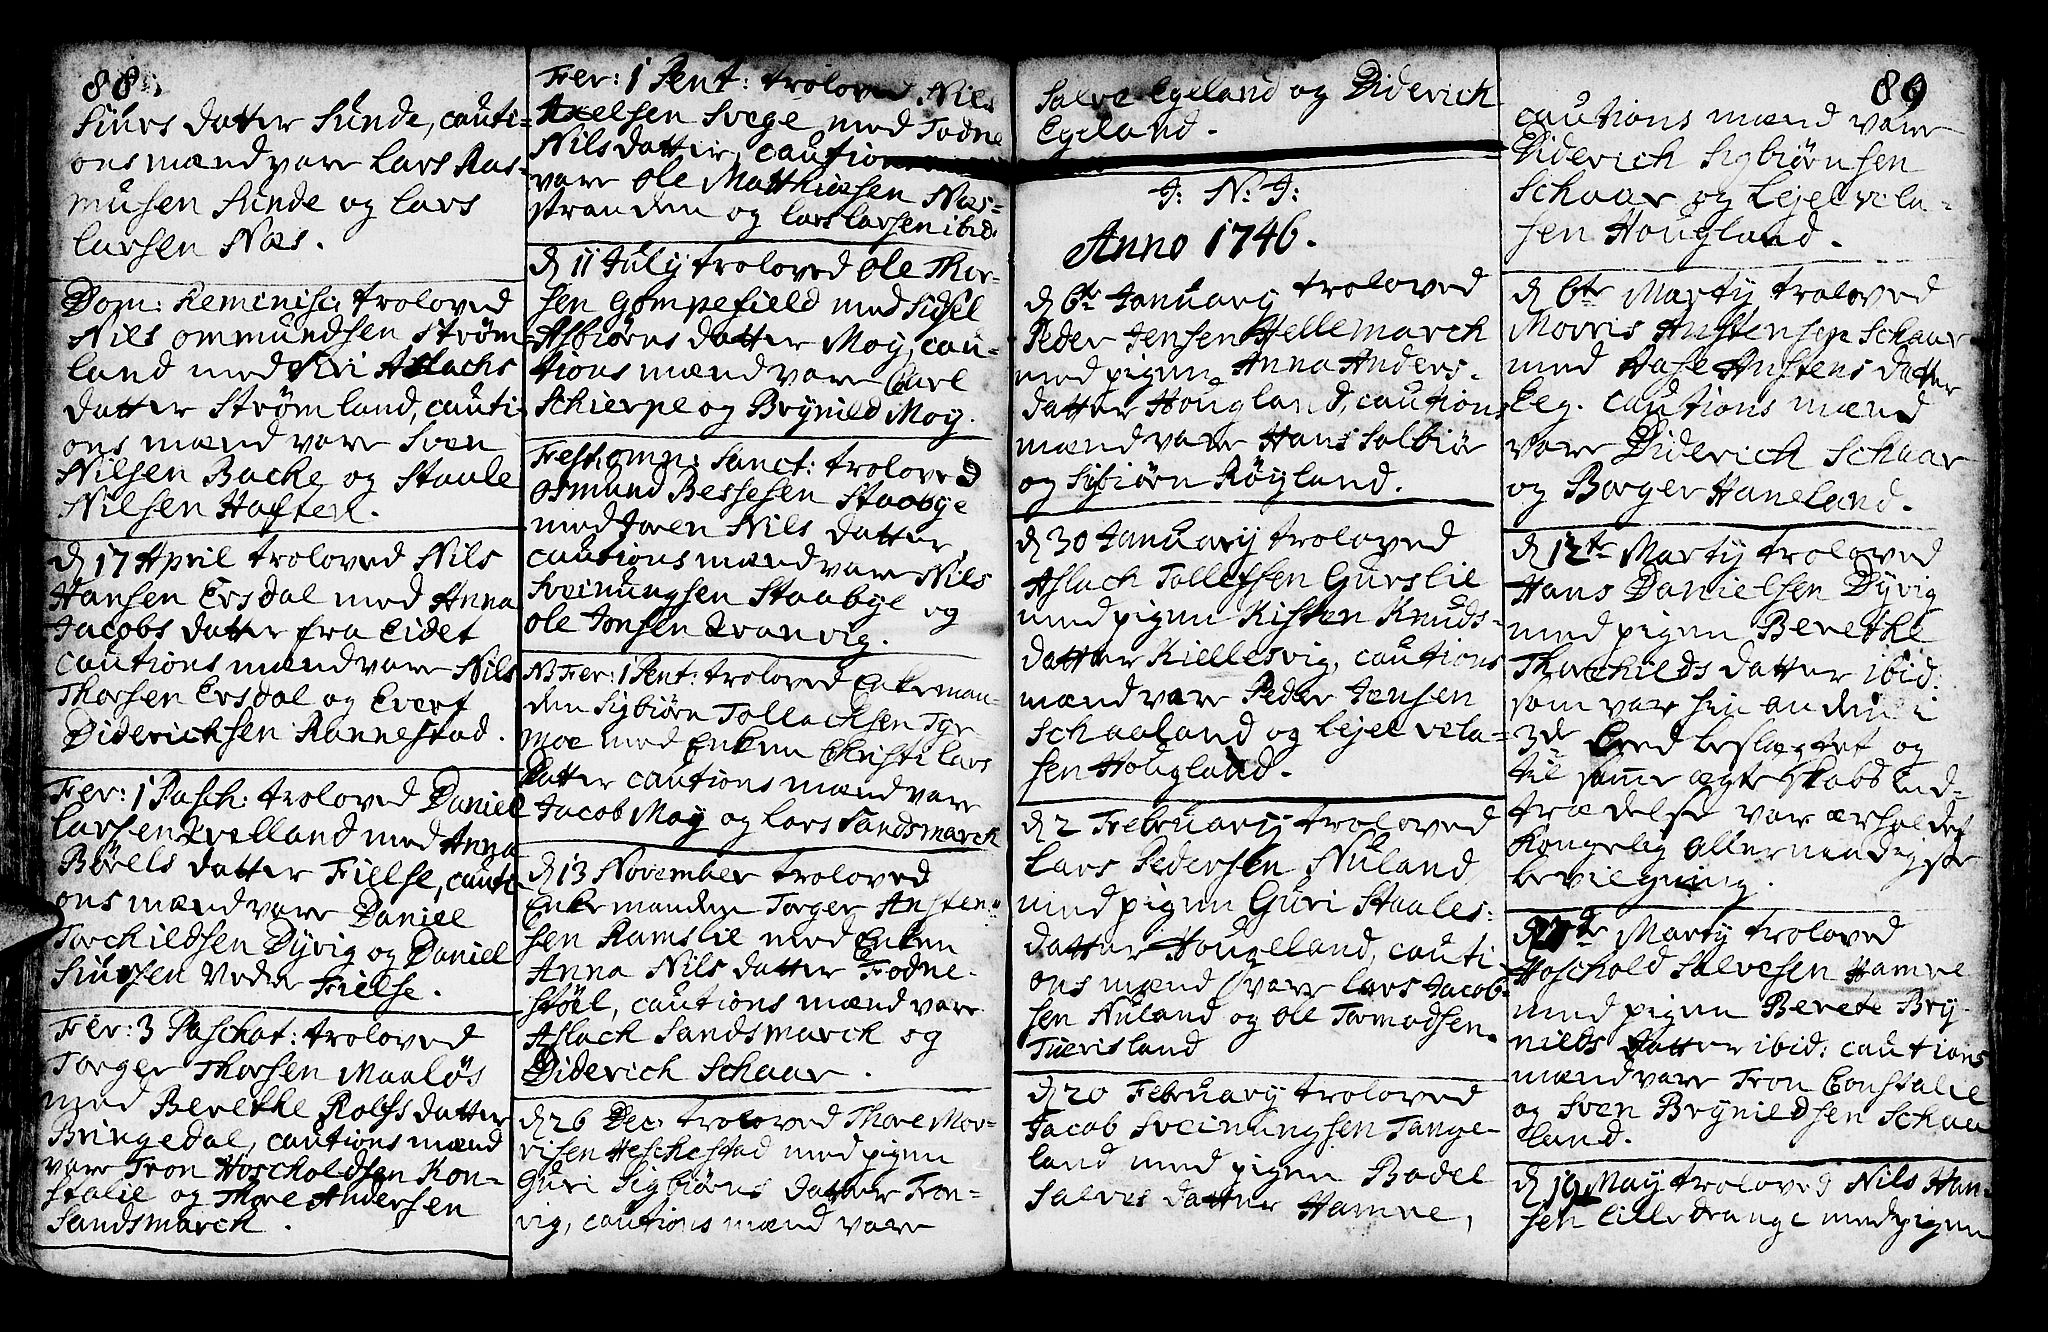 88.
Siurs datter Sunde, cauti-
ons mænd vare Lars Ras-
musen Sunde og Lars
Larsen Næs.
Dom: Reminisc: troloved
Nils Ommundsen Strøm-
land med Siri Aslachs
datter Strømland, cauti-
ons mænd vare Sven
Nilsen Backe og Staale
Nilsen Haften.
d 17 April troloved Nils
Hansen Ersdal med Anna
Jacobs datter fra Eidet
cautions mænd vare Nils
Thorsen Ersdal og Evert
Diderichsen Rannestad.
Fer: 1 Pasch: troloved Daniel
Larsen Qvelland med Anna
Börels datter Fielse, cauti-
ons mænd vare Daniel
Torchildsen Dyvig og Daniel
Siursen Nedre Fielse.
Fer: 3 Paschat: troloved
Torger Thorsen Maaløs
med Berethe Rolfs datter
Bringedal, cautions mænd
vare Tron Hoscholdsen Kon-
stalie og Thore Andersen
Sandsmarck.
Fer: 1 Pent: troloved Nils
Axelsen Svege med Todne
Nilsdatter, caution
vare Ole Matthiasen Næs-
stranden og Lars Larsen ibid.
d 11 July troloved Ole Thor-
sen Gompefield med Sidsel
Asbiørns datter Moy, cau-
tions mænd vare Carl
Schierpe og Brynild Moy.
Fest: omn: Sanct: troloved
Osmund Bessesen Staabye
med Joren Nils datter,
cautions mænd vare Nils
Sveinungsen Staabye og
Ole Jonsen Qvanvig.
N Fer: 1 Pent: troloved Enkeman-
den Sigbiørn Tollachsen Tye-
moe med Enken Christi Lars
datter cautions mænd vare
Jacob Moy og Lars Sandsmarck
d 13 November troloved
Enkemanden Torger Ansten-
sen Ramslie med Enken
Anna Nils datter Fodne-
støel, cautions mænd vare
Aslach Sandsmarck og
Diderich Schaar.
d 26 Dec: troloved Thore Mor-
risen Heschestad med pigen
Guri Sigbiørns datter Tron-
vig, cautions mænd vare
Salve Egeland og Diderich
Egeland.
J: N: J:
Anno 1746.
d 6te January troloved
Peder Jensen Hellemarch
med pigen Anna Anders-
datter Hougland, cautions
mænd vare Hans Solbiør
og Sigbiørn Røyland.
d 30 January troloved
Aslach Tollefsen Gurslie
med pigen Kisten Knuds-
datter Kiellesvig, cautions
mænd vare Peder Jensen
Schaaland og Eiel Vela-
sen Hougland.
d 2 February troloved
Lars Pedersen Nuland
med pigen Guri Staales-
datter Hougeland, cauti-
ons mænd vare Lars Jacob-
sen Nuland og Ole Tormodsen
Tuerisland
d 20 February troloved
Jacob Sveinungsen Tange-
land med pigen Bodel
Salves datter Hamre,
89
cautions mænd vare
Diderich Sigbiørnsen
Schaar og Eiel Vela-
sen Hougland.
d 6te Marty troloved
Morris Anstensen Schaar
med Aase Anstens datter
Eeg. cautions mænd
vare Diderich Schaar
og Borger Haneland.
d 12te Marty troloved
Hans Danielsen Dyvig
med pigen Berethe
Thorchilds datter ibid:
som var hin anden i
3de Leed beslægtet og
til samme ægteskabs Ind-
trædelse var ærholdet
Kongelig allernaadigste
bevilgning.
d Marty troloved
Hoschold Salvesen Hamre
med pigen Berete Bry-
nilds datter ibid: cautions
mænd vare Tron Constalie
og Sven Brynildsen Schaa-
land.
d 19 May troloved Nils Han-
sen Lilledrange med pigen